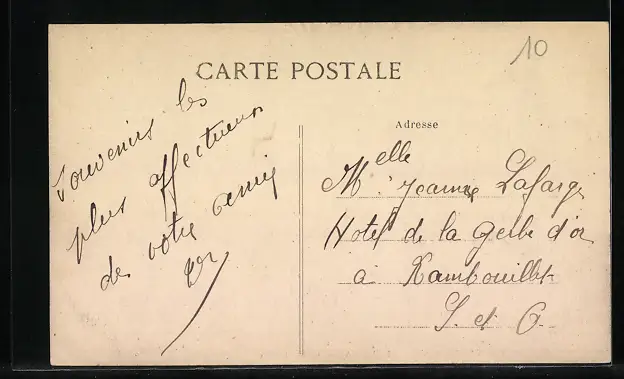 10
CARTE POSTALE
Souvenirs les
plus affectueux
de votre amie
Adresse
Melle Jeanne Lafarge
Hotel de la Gerbe d'or
à Rambouillet
S. et O.